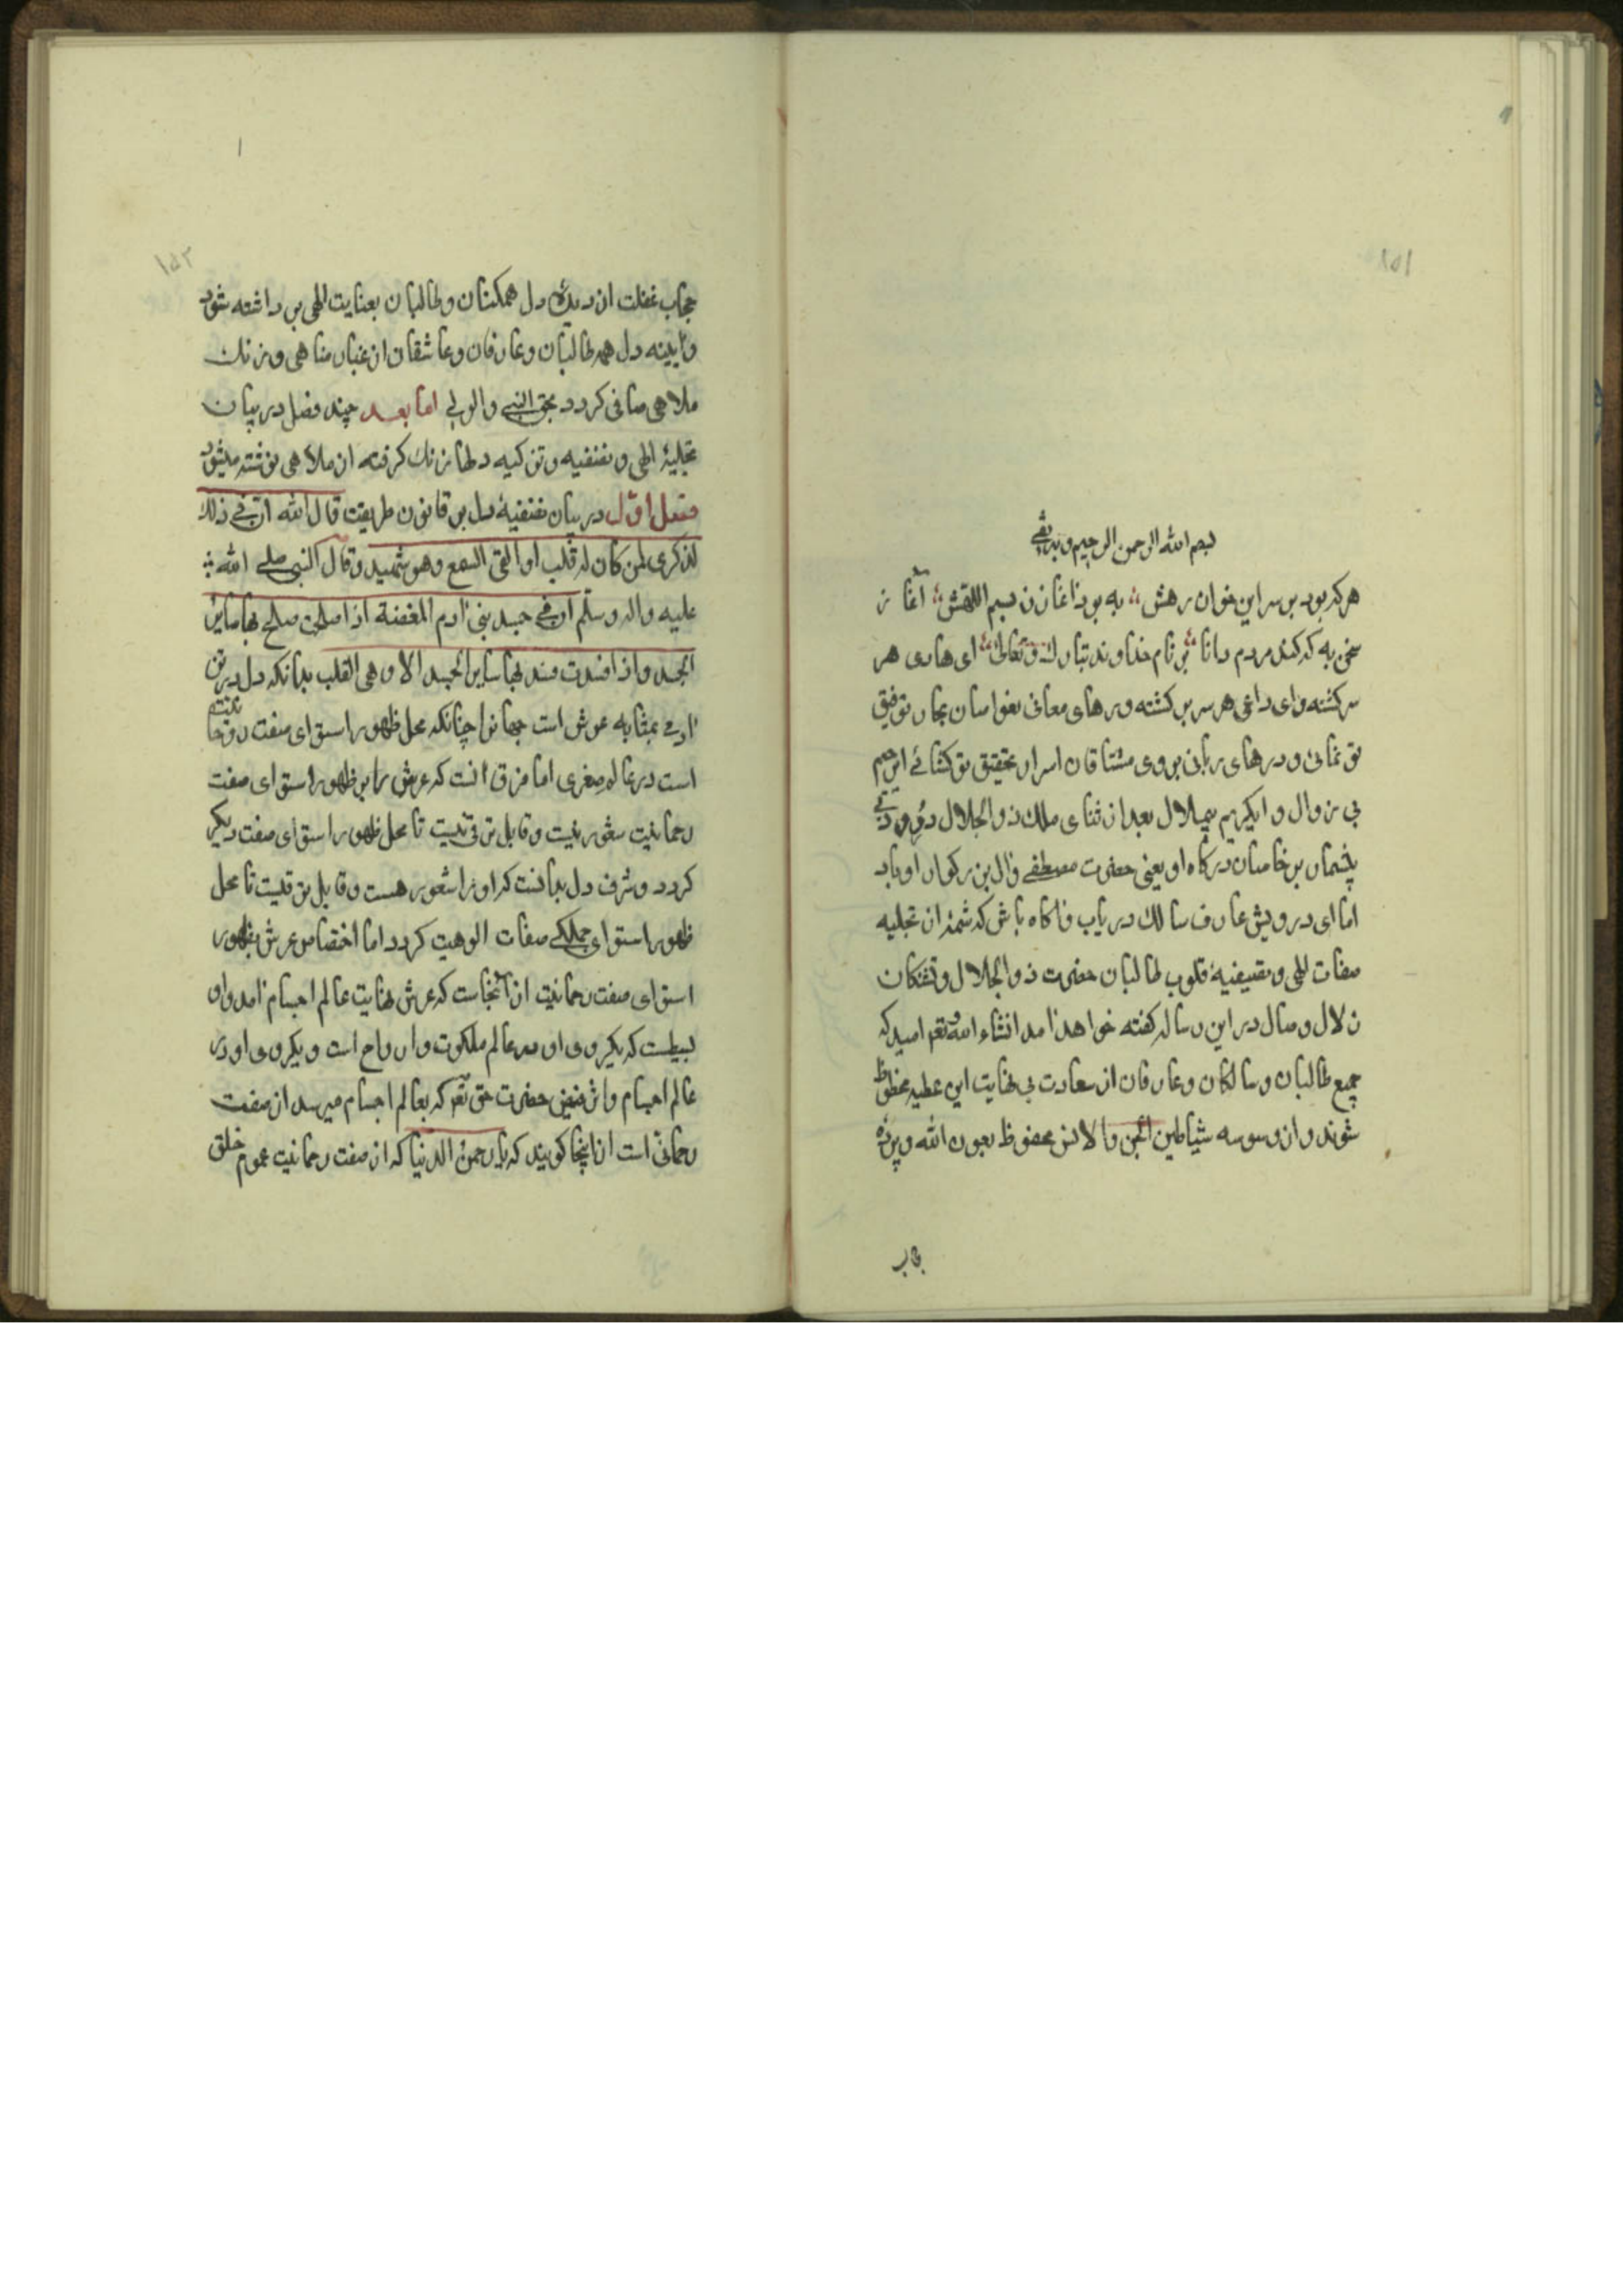 ۱۵۱
بسم الله الرحمن الرحیم وبه ثقتی
هرکه بود بر سر این خوان رهش به بود اغاز ز بسم اللهش آغاز
سخن به که کند مردم دانا بر نام خداوند تبارک و تعالی ای هادی هر
سرکشته وای داعی هر سر برکشته ودرهای معانی بغواصان بحار توفیق
تو نمائی ودرهای ربانی بروی مشتاقان اسرار تحقیق تو کشائی ای رحیم
بی زوال و ای کریم بیملال بعد از ثنای ملک ذو الجلال درود
بیشمار بر خاصان درکاه او یعنی حضرت مصطفی وال بزرکوار او باد
اما ای درویش عارف سالک دریاب واکاه باش که شمهٔ از تجلیه
صفات اللهی وتصیفیهٔ قلوب طالبان حضرت ذو الجلال وتشنکان
زلال وصال در این رساله کفته خواهد امد انشاء الله تعه امید که
جمیع طالبان وسالکان وعارفان از سعادت بی نهایت این عطیه محظوظ
شوند واز وسوسه شیاطین الجن والانس محفوظ بعون الله وپردهٔ
حجاب
۱
۱۵۲
حجاب غفلت از دیدهٔ دل همکنان وطالبان بعنایت الهی بر داشته شود
وآیینه دل همه طالبان وعارفان وعاشقان از غبار مناهی وزنک
ملاهی صافی کردد بحق النبی والولی اما بعد چند فصل در بیان
تجلیهٔ الهی وتصفیه وتزکیه دلها زنک کرفته از ملاهی نوشته میشود
فصل اوّل در بیان تصفیهٔ دل بر قانون طریقت قال الله ان فی ذلک
لذکری لمن کان له قلب او القی السمع وهو شهید وقال النبی صلی الله
علیه واله وسلّم ان فی جسد بنی ادم المضغة اذا صلحت صلح بها سایر
الجسد واذا فسدت فسد بها سایر الجسد الا وهی القلب بدانکه دل در تن
ادمی بمثابه عرش است جهانرا چنانکه محل ظهور استوای صفت روحانیت
است در عالم صغری اما فرق انست که عرش را بر ظهور استوای صفت
رحمانیت شعور نیست وقابل ترقی نیست تا محل ظهور استوای صفت دیکر
کردد وشرف دل بدانست که اورا شعور هست وقابل ترقیست تا محل
ظهور استوای جملکی صفات الوهیت کردد اما اختصاص عرش بظهور
استوای صفت رحمانیت از آنجاست که عرش نهایت عالم اجسام امد واو
بسیطست که یکروی او در عالم ملکوت وارواح است ویکروی او در
عالم اجسام واثر فیض حضرت حق تعه که بعالم اجسام میرسد از صفت
رحمانی است از اینجا کویند که یا رحمن الدنیا که از صفت رحمانیت عموم خلق